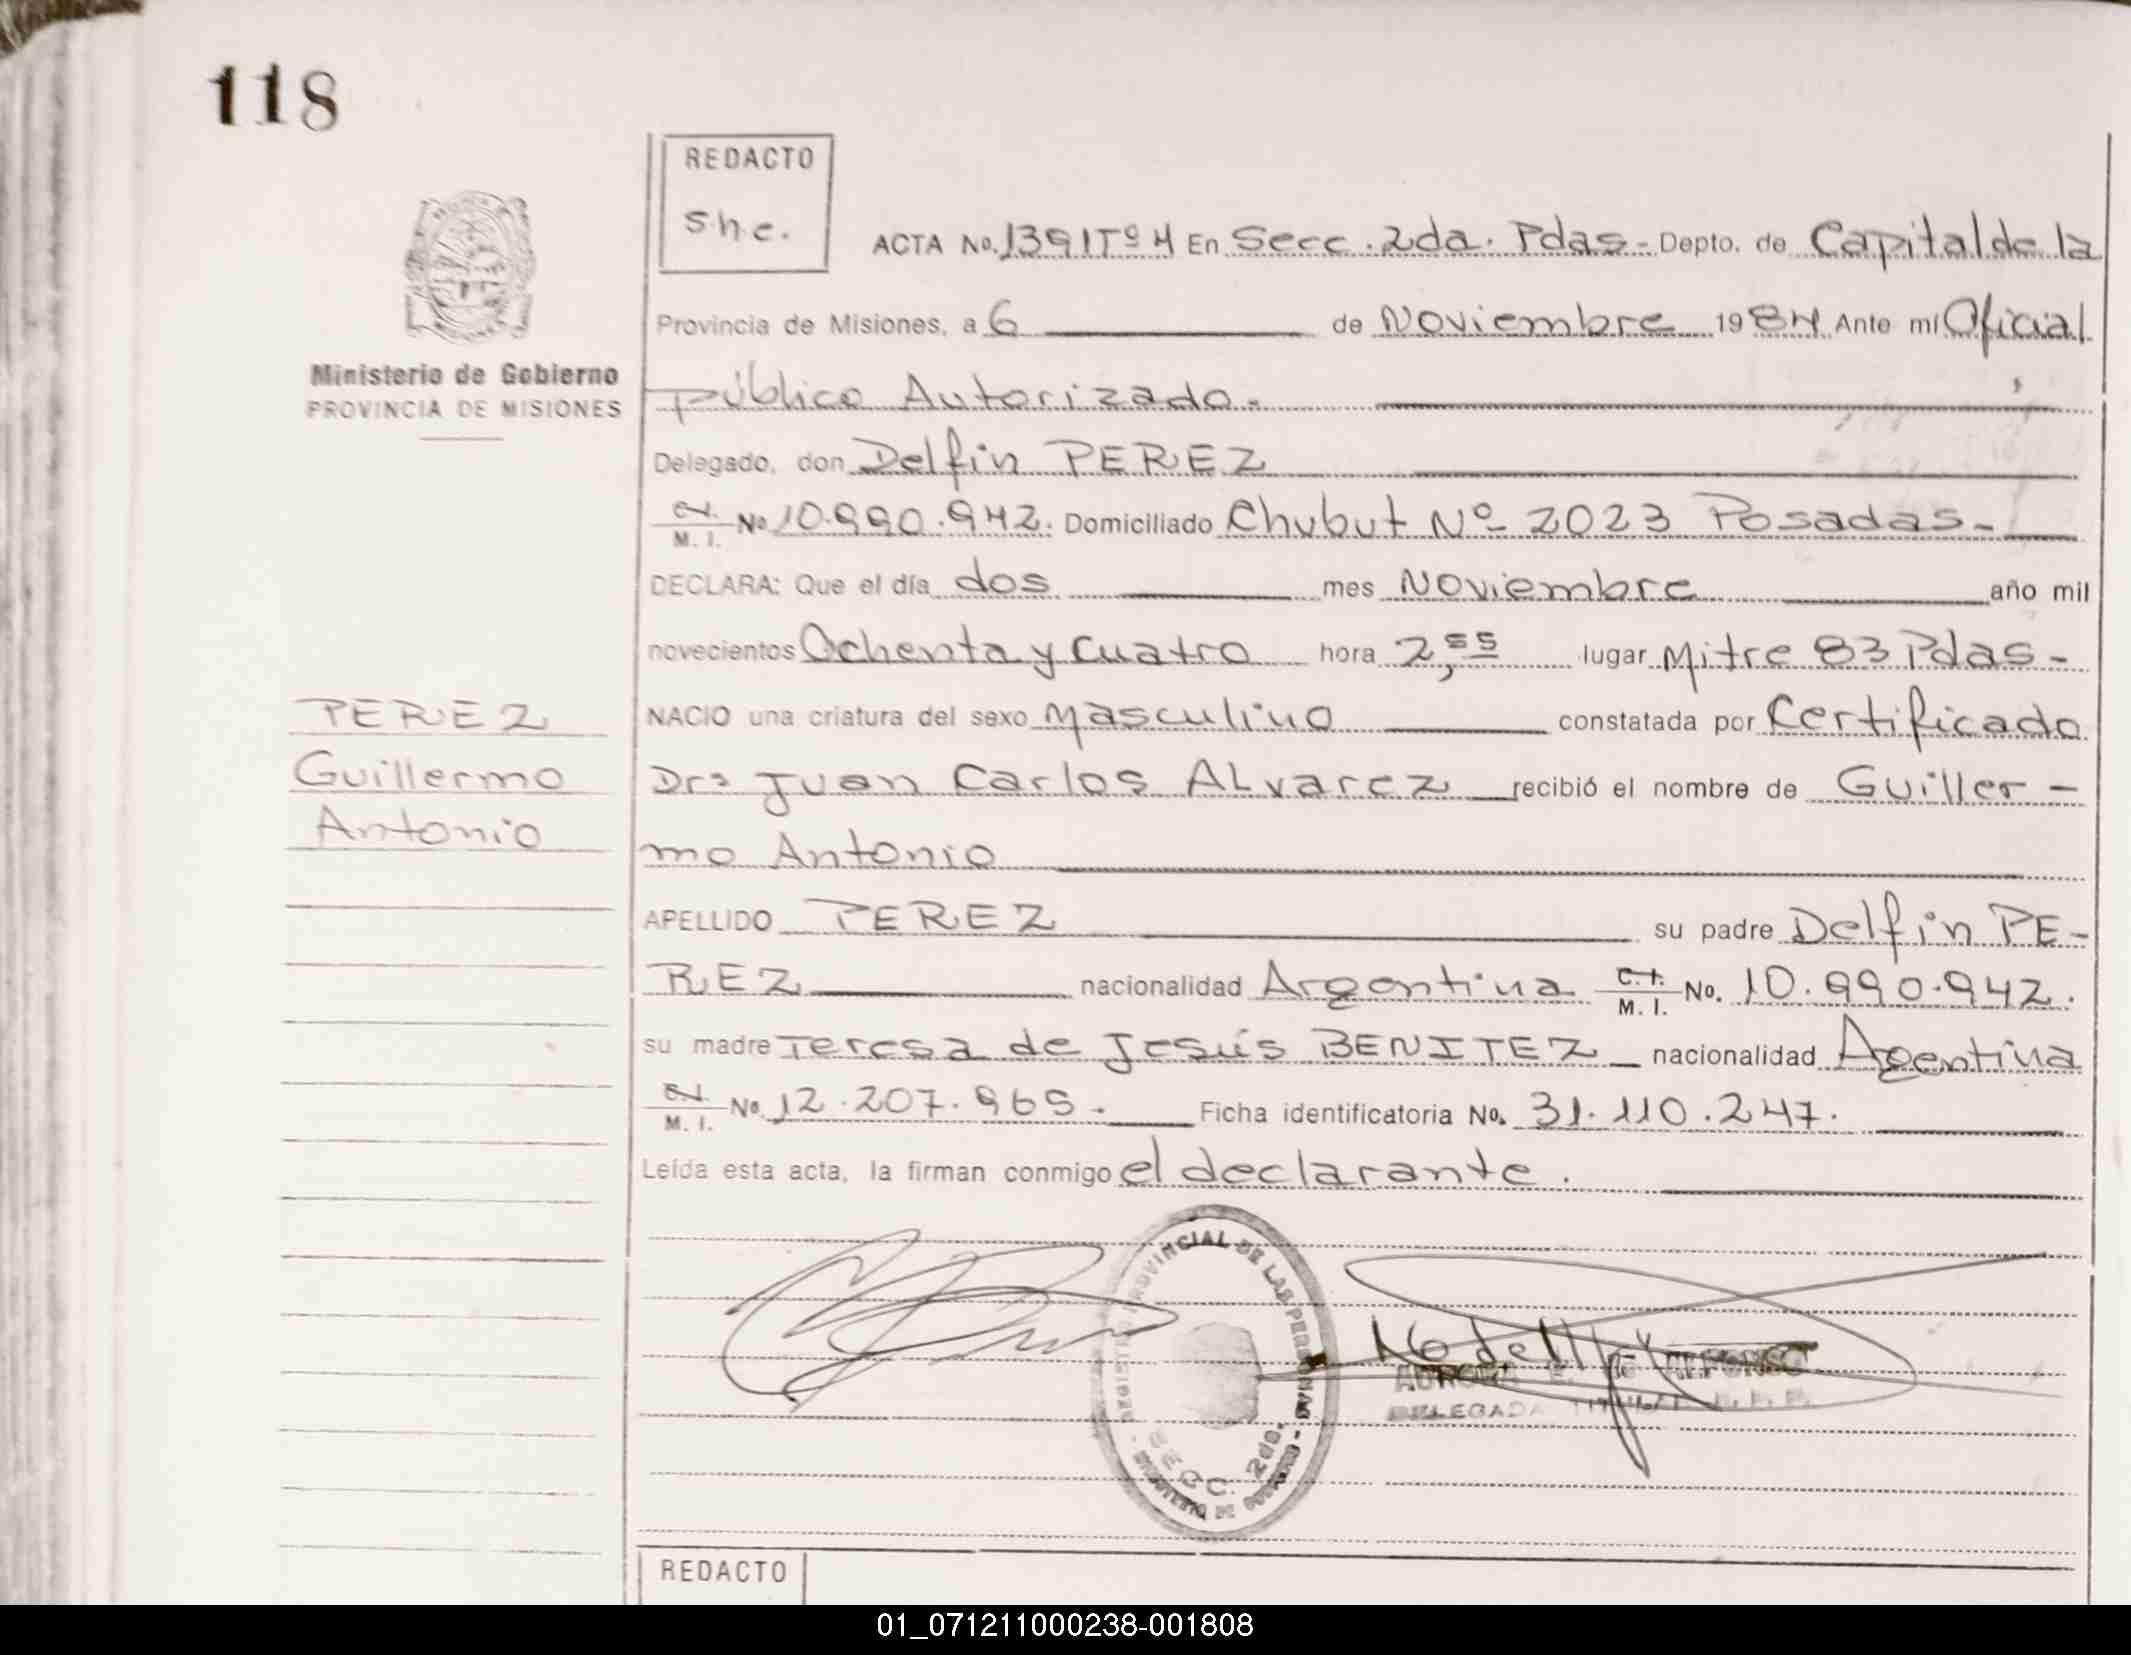 118
REDACTO
She.
ACTA No. 1391 Tº 4 En Secc. 2da. Pdas- Depto. de Capital de la
Provincia de Misiones, a 6 de Noviembre 1984 Ante mí Oficial
Ministerio de Gobierno
PROVINCIA DE MISIONES
Público Autorizado.
Delegado, don Delfin PEREZ
C.I. M. I. No 10.990.942. Domiciliado Chubut Nº 2023 Posadas-
DECLARA: Que el día dos mes Noviembre año mil
novecientos Ochenta y Cuatro hora 2,55 lugar Mitre 83 Pdas-
PEREZ
Guillermo
Antonio
NACIO una criatura del sexo Masculino constatada por Certificado
Dr: Juan Carlos ALvarez recibió el nombre de Guiller-
mo Antonio
APELLIDO PEREZ su padre Delfin PE-
REZ nacionalidad Argentina C.I. M. I. No. 10.990.942.
su madre Teresa de Jesús BENITEZ nacionalidad Argentina
C.I. M. I. No. 12.207.965. Ficha identificatoria No. 31.110.247.
Leída esta acta, la firman conmigo el declarante.
REGISTRO PROVINCIAL DE LAS PERSONAS
SECC. 2da.
MINISTERIO DE GOBIERNO
AURORA E. de ALFONSO
DELEGADA TITULAR
REDACTO
01_071211000238-001808